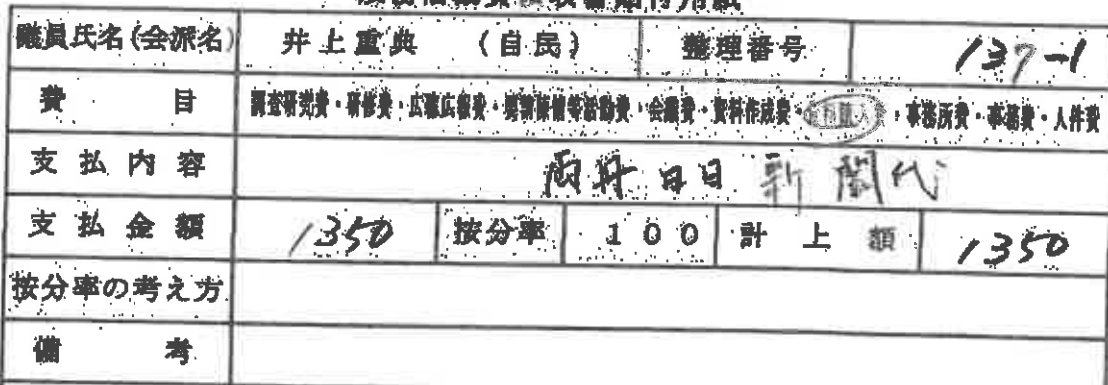 議員氏名(会派名) 井上重典 (自民) 整理番号 137-1
費目 調査研究費・研修費・広聴広報費・要請陳情等活動費・会議費・資料作成費・資料購入費・事務所費・事務費・人件費
支払内容 両丹日日新聞代
支払金額 1350 按分率 100 計上額 1350
按分率の考え方
備考